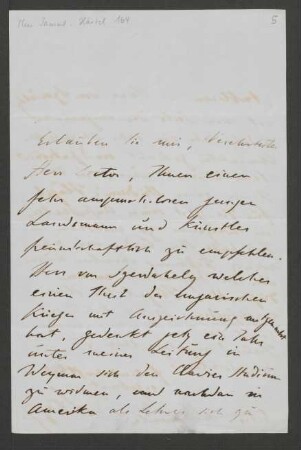 5
Erlauben Sie mir, verehrtester
Herr Doctor, Ihnen einen
sehr anspruchslosen jungen
Landsmann und Künstler
freundschaftlich zu empfehlen.
Herr von welcher
einen Theil des Ungarischen
Krieges mit Auszeichnung mitgemacht
hat, gedenkt jetz ein Jahr
unter meiner Leitung in
Weymar sich den Clavier Studium
zu widmen, und nachdem in
Amerika als Lehrer sich zu